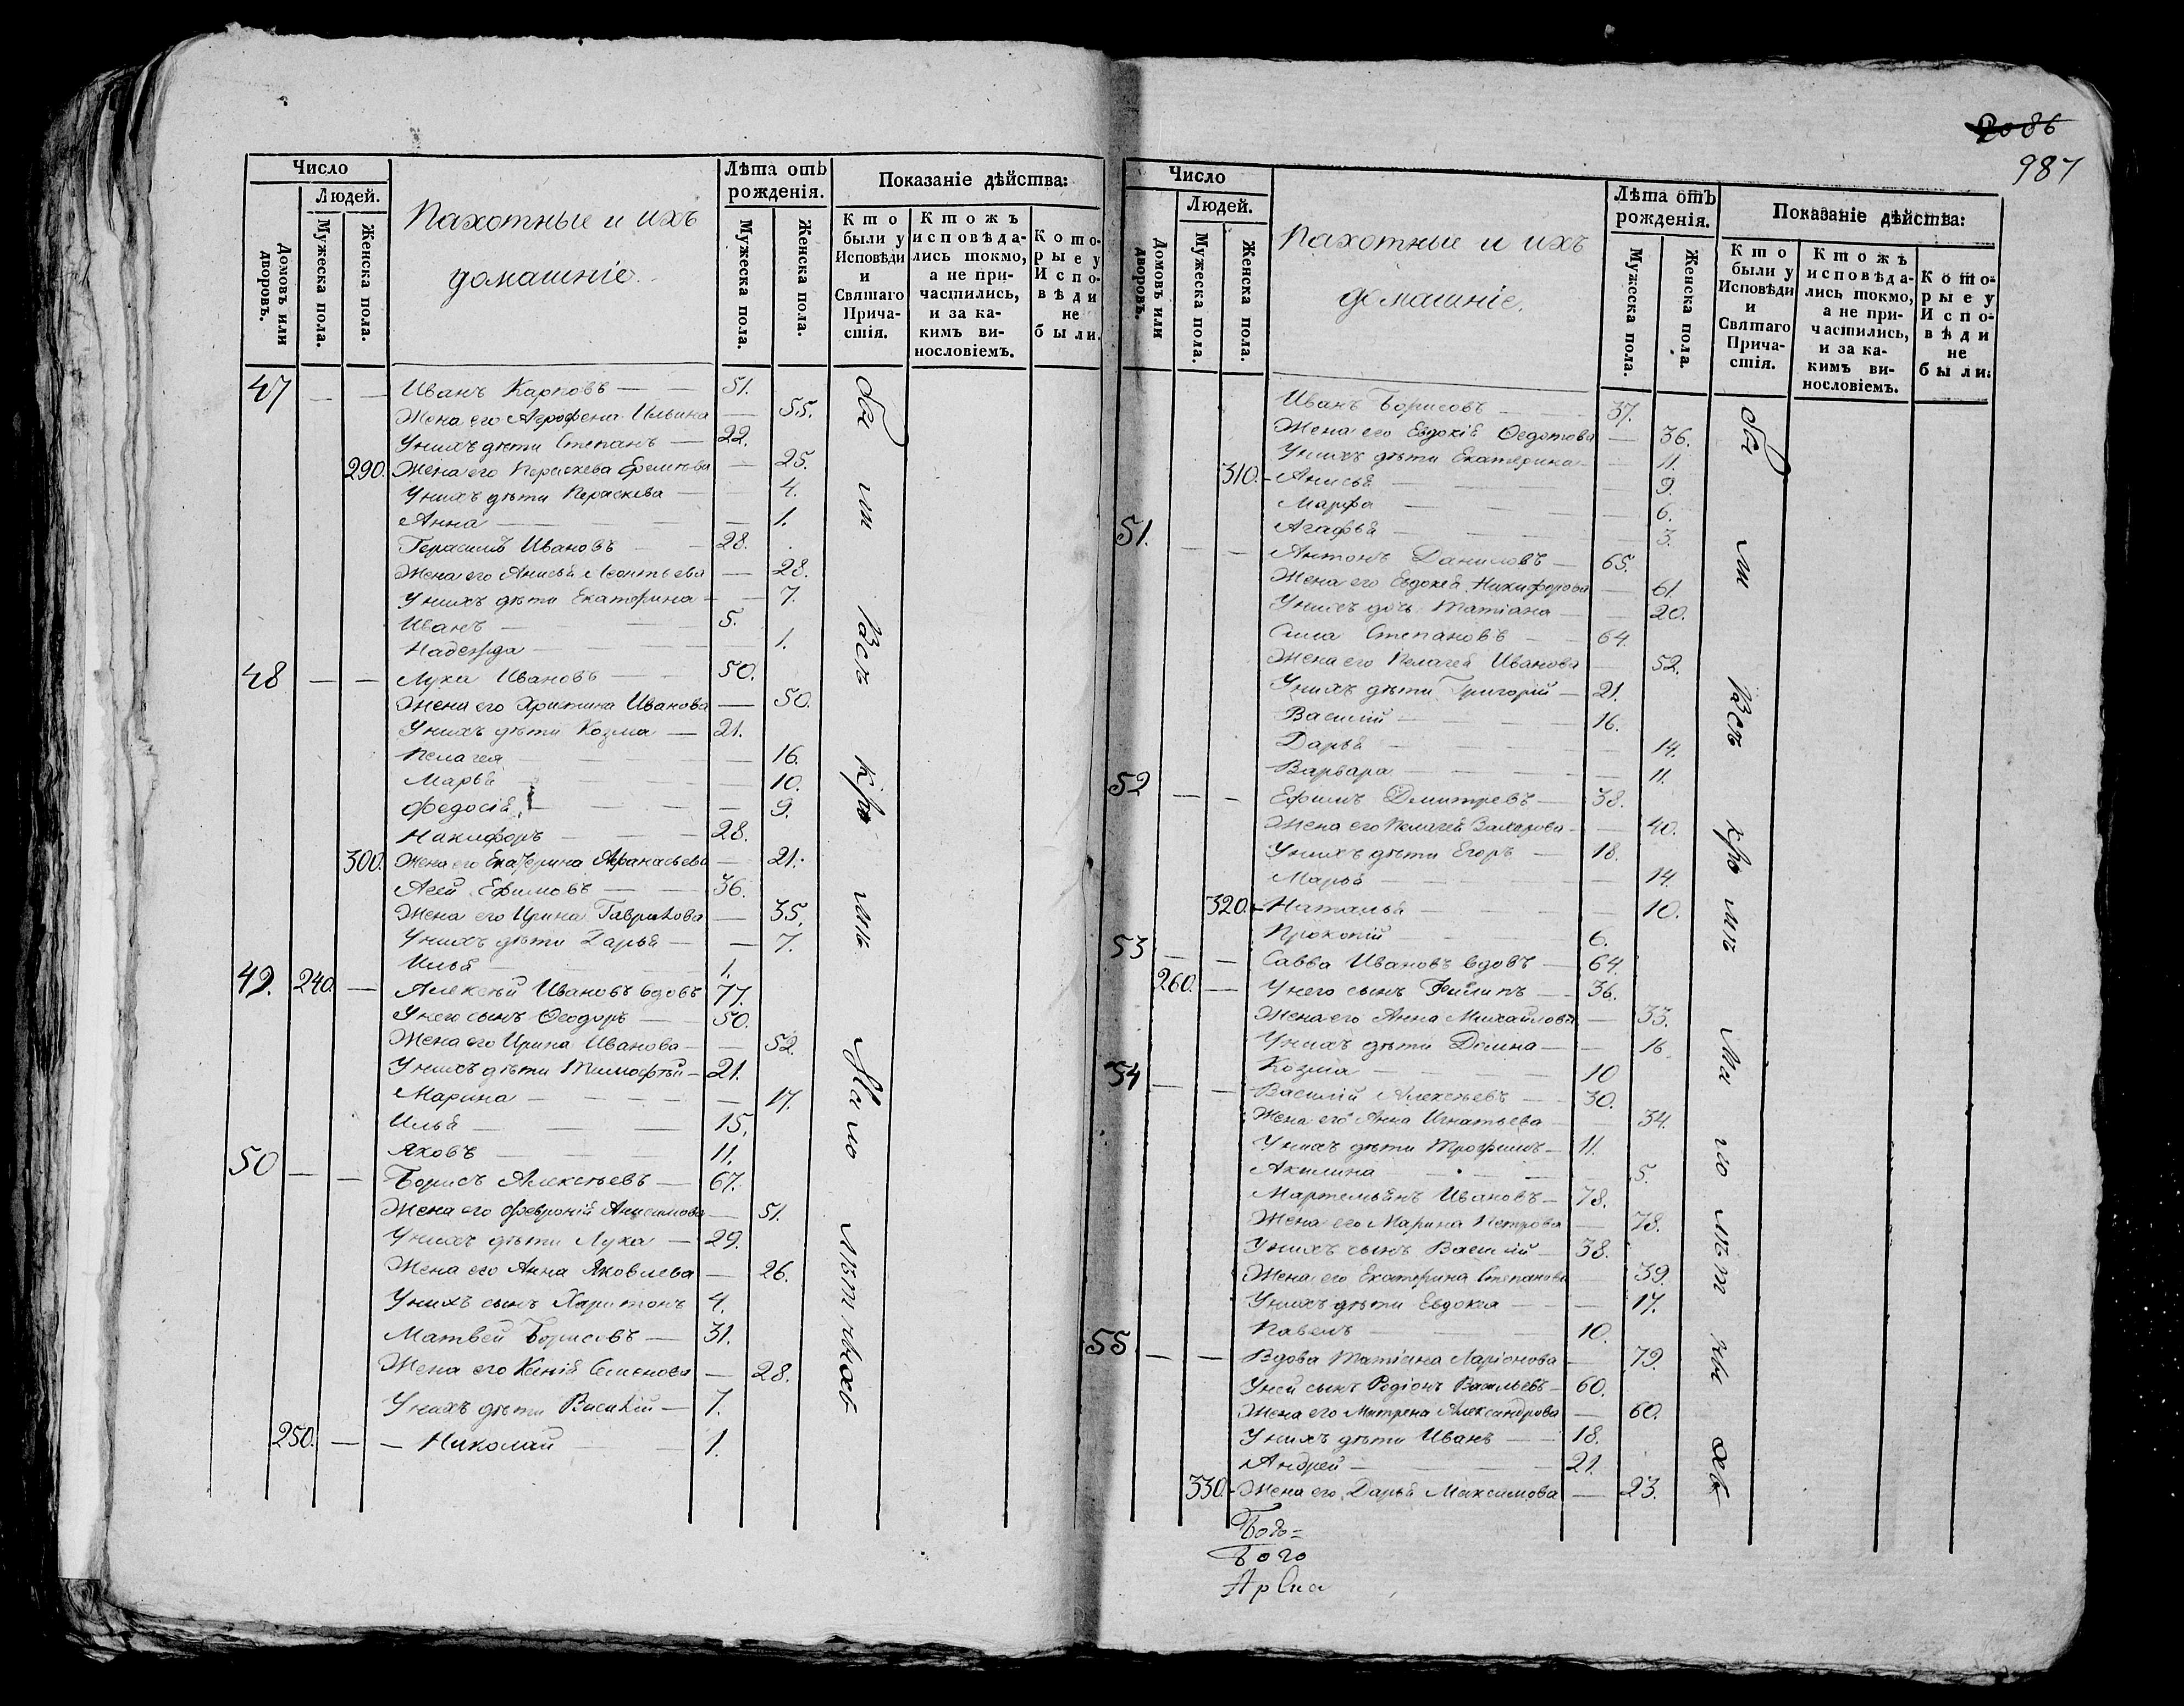 2086
987
Число
Людей.
Домовъ или дворовъ.
Мужеска пола.
Женска пола.
Пахотные и ихъ
домашніе.
Лѣта отъ
рожденія.
Мужеска пола.
Женска пола.
Показаніе дѣйства:
Кто были у Исповѣди и Святаго Прича-стія.
Ктожъ исповѣда-лись токмо, а не при-частились, и за ка-кимъ ви-нословіемъ.
Кото-рые у Испо-вѣди не были.
47 — — Иванъ Карповъ — — 51.
Жена его Агрофена Ильина — 55.
У нихъ дѣти Степанъ — 22.
290. Жена его Параскева Еремѣева — 25.
У нихъ дѣти Параскева — 4.
Анна — — — 1.
Герасимъ Ивановъ — — 28.
Жена его Анисья Леонтьева — 28.
У нихъ дѣти Екатерина — — 7.
Иванъ — — — 5.
Надежда — — — 1.
48 — — Лука Ивановъ — — 50.
Жена его Христина Иванова — 50.
У нихъ дѣти Козма — 21.
Пелагея — — — 16.
Марья — — — 10.
Федосія — — — 9.
Никифоръ — — — 28.
300. Жена его Екатерина Афанасьева — 21.
Ефимовъ — — 36.
Жена его Ирина Гаврилова — 35.
У нихъ дѣти Дарья — — 7.
Илья — — — 1.
49. 240. — Алексѣй Ивановъ вдовъ 77.
У него сынъ Ѳеодоръ — 50.
Жена его Ирина Иванова — — 52.
У нихъ дѣти Тимофѣй — 21.
Марина — — — 17.
Илья — — — 15.
Яковъ — — — 11.
50 — — Борисъ Алексѣевъ — 67.
Жена его Февронія Анисимова — 51.
У нихъ дѣти Лука — 29.
Жена его Анна Яковлева — 26.
У нихъ сынъ Харитонъ 4.
Матвей Борисовъ — 31.
Жена его Ксенія Семенова — 28.
У нихъ дѣти Василій — 7.
250. — — Николай — 1.
Всѣ
кро
мѣ
Мало
лѣтныхъ
Число
Людей.
Домовъ или дворовъ.
Мужеска пола.
Женска пола.
Пахотные и ихъ
домашніе.
Лѣта отъ
рожденія.
Мужеска пола.
Женска пола.
Показаніе дѣйства:
Кто были у Исповѣди и Святаго Прича-стія.
Ктожъ исповѣда-лись токмо, а не при-частились, и за ка-кимъ ви-нословіемъ.
Кото-рые у Испо-вѣди не были.
Иванъ Борисовъ — — 37.
Жена его Евдокія Ѳедотова — 36.
У нихъ дѣти Екатерина — — 11.
310. Анисья — — — 9.
Марфа — — — 6.
Агафья — — — 3.
51. — — Антонъ Даниловъ — 65.
Жена его Евдокія Никифорова — 61.
У нихъ дочь Татіана — — 20.
Сила Степановъ — — 64.
Жена его Пелагея Иванова — 52.
У нихъ дѣти Григорій — 21.
Василій — — — 16.
Дарья — — — 14.
Варвара — — — 11.
52 — — Ефимъ Дмитревъ — 38.
Жена его Пелагея Захарова — — 40.
У нихъ дѣти Егоръ — 18.
Марья — — — 14.
320. Наталья — — — 10.
Прокопій — — — 6.
53 — — Савва Ивановъ вдовъ — 64.
260. — У него сынъ Филипъ — 36.
Жена его Анна Михайлова — 33.
У нихъ дѣти Домна — — 16.
Козма — — — 10
54 — — Василій Алексѣевъ — 30.
Жена его Анна Игнатьева — 34.
У нихъ дѣти Трофимъ — 11.
Акилина — — — 5.
Мартемьянъ Ивановъ — 78.
Жена его Марина Петрова — 78.
У нихъ сынъ Василій — 38.
Жена его Екатерина Степанова — 39.
У нихъ дѣти Евдокея — — 17.
Павелъ — — — 10.
55 — — Вдова Татіана Ларіонова — 79.
У ней сынъ Родіонъ Васильевъ — 60.
Жена его Матрена Александрова — 60.
У нихъ дѣти Иванъ — 18.
Андрей — — — 21.
330. Жена его Дарья Максимова — 23.
Всѣ
кро
мѣ
Ма
ло
лѣт
ны
хъ